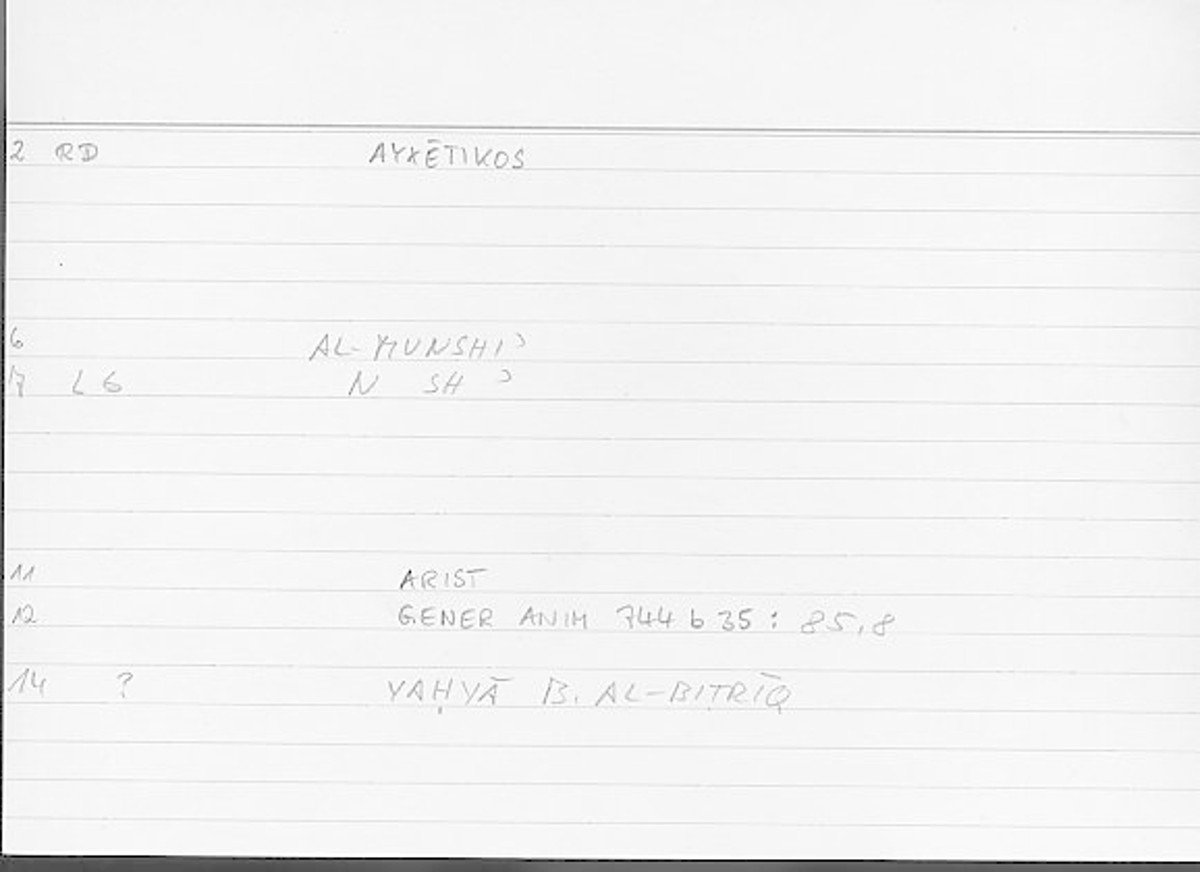 2 RD AYXĒTIKOS
6 AL-MUNSHIʾ
7 L6 N SH ʾ
11 ARIST
12 GENER ANIM 744 b 35 : 85,8
14 ? YAḤYĀ B. AL-BIṬRĪQ